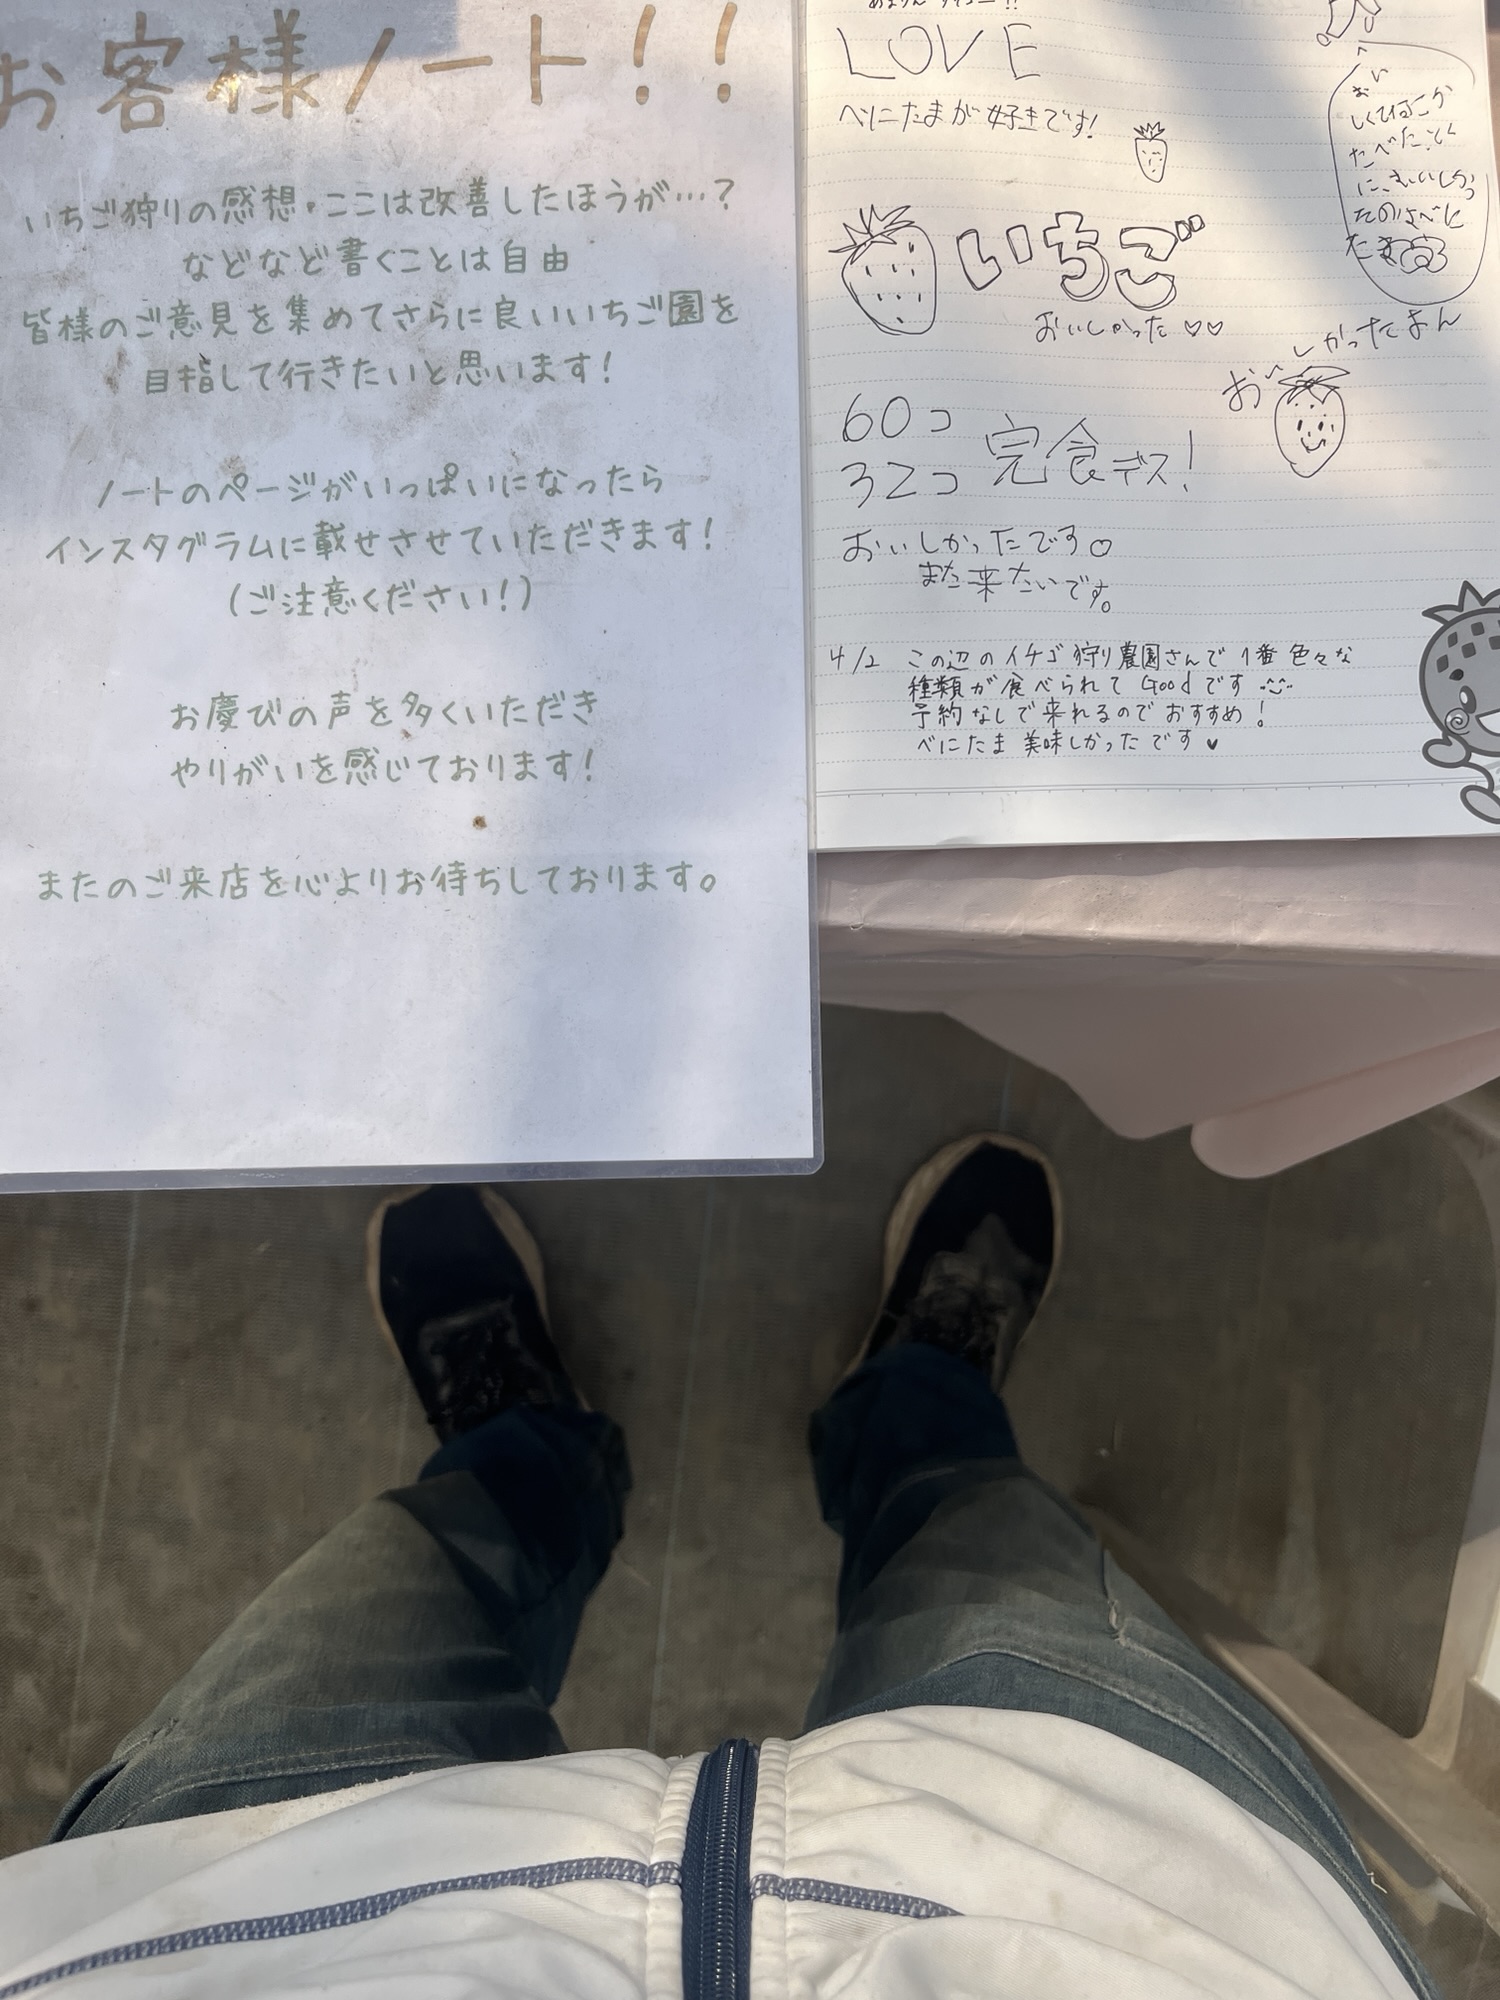 お客様ノート!!
いちご狩りの感想・ここは改善したほうが…?
などなど書くことは自由
皆様のご意見を集めてさらに良いいちご園を
目指して行きたいと思います!
ノートのページがいっぱいになったら
インスタグラムに載せさせていただきます!
(ご注意ください!)
お慶びの声を多くいただき
やりがいを感じております!
またのご来店を心よりお待ちしております。
LOVE
べにたまが好きです!
いちご
おいしかった♡♡
60コ
32コ 完食デス!
おいしかったです♡
また来たいです。
4/2 この辺のイチゴ狩り農園さんで1番色々な
種類が食べられてGoodです
予約なしで来れるのでおすすめ!
べにたま 美味しかったです♥
おい
たべた、とく